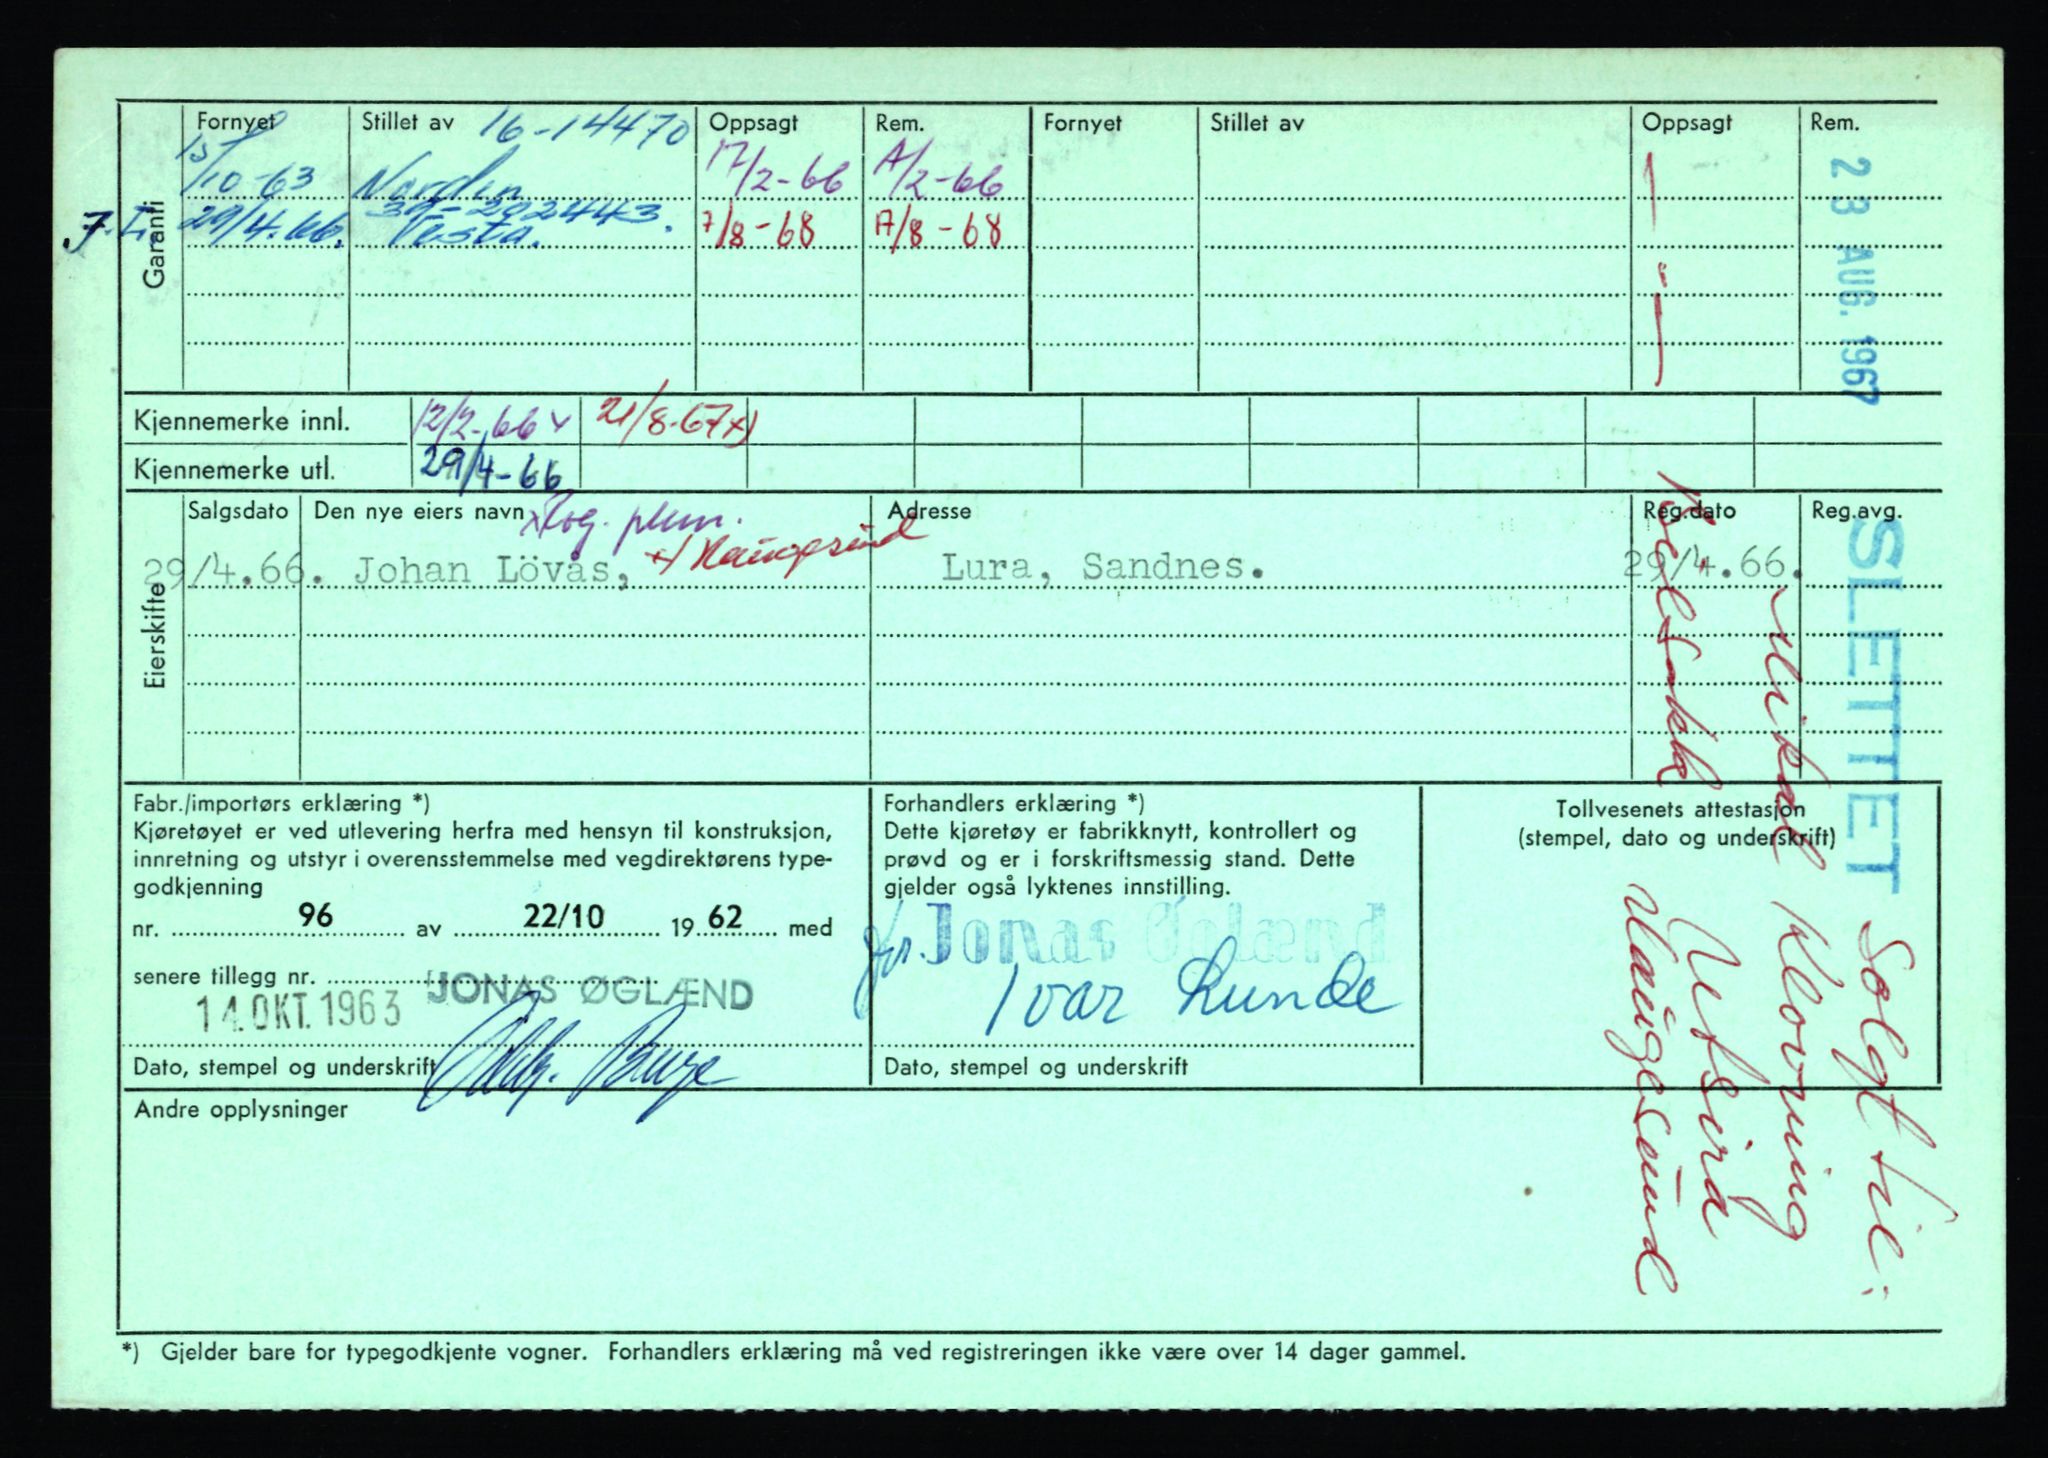 Fornyet Stillet av 16-14470 Oppsagt Rem. Fornyet Stillet av Oppsagt Rem.
15/10-63 Norden 17/2-66 A/2-66
Garanti
29/4.66. Vesta. 7/8-68 A/8-68
23 AUG. 1967
Kjennemerke innl. 12/2-66 x 21/8-67 x)
Kjennemerke utl. 29/4-66
Eierskifte
Salgsdato Den nye eiers navn Adresse Reg.dato Reg.avg.
x Rog.
x) Haugesund
29/4.66. Johan Lövås, Lura, Sandnes. 29/4.66.
SLETTET
Solgt til:
Mikal Klovning
Utsira
Haugesund
Fabr./importørs erklæring *)
Kjøretøyet er ved utlevering herfra med hensyn til konstruksjon,
innretning og utstyr i overensstemmelse med vegdirektørens type-
godkjenning
nr. 96 av 22/10 19 62 med
senere tillegg nr.
14. OKT. 1963 JONAS ØGLÆND
Dato, stempel og underskrift
Forhandlers erklæring *)
Dette kjøretøy er fabrikknytt, kontrollert og
prøvd og er i forskriftsmessig stand. Dette
gjelder også lyktenes innstilling.
for Jonas Øglænd
Ivar Lunde
Dato, stempel og underskrift
Tollvesenets attestasjon
(stempel, dato og underskrift)
Andre opplysninger
*) Gjelder bare for typegodkjente vogner. Forhandlers erklæring må ved registreringen ikke være over 14 dager gammel.